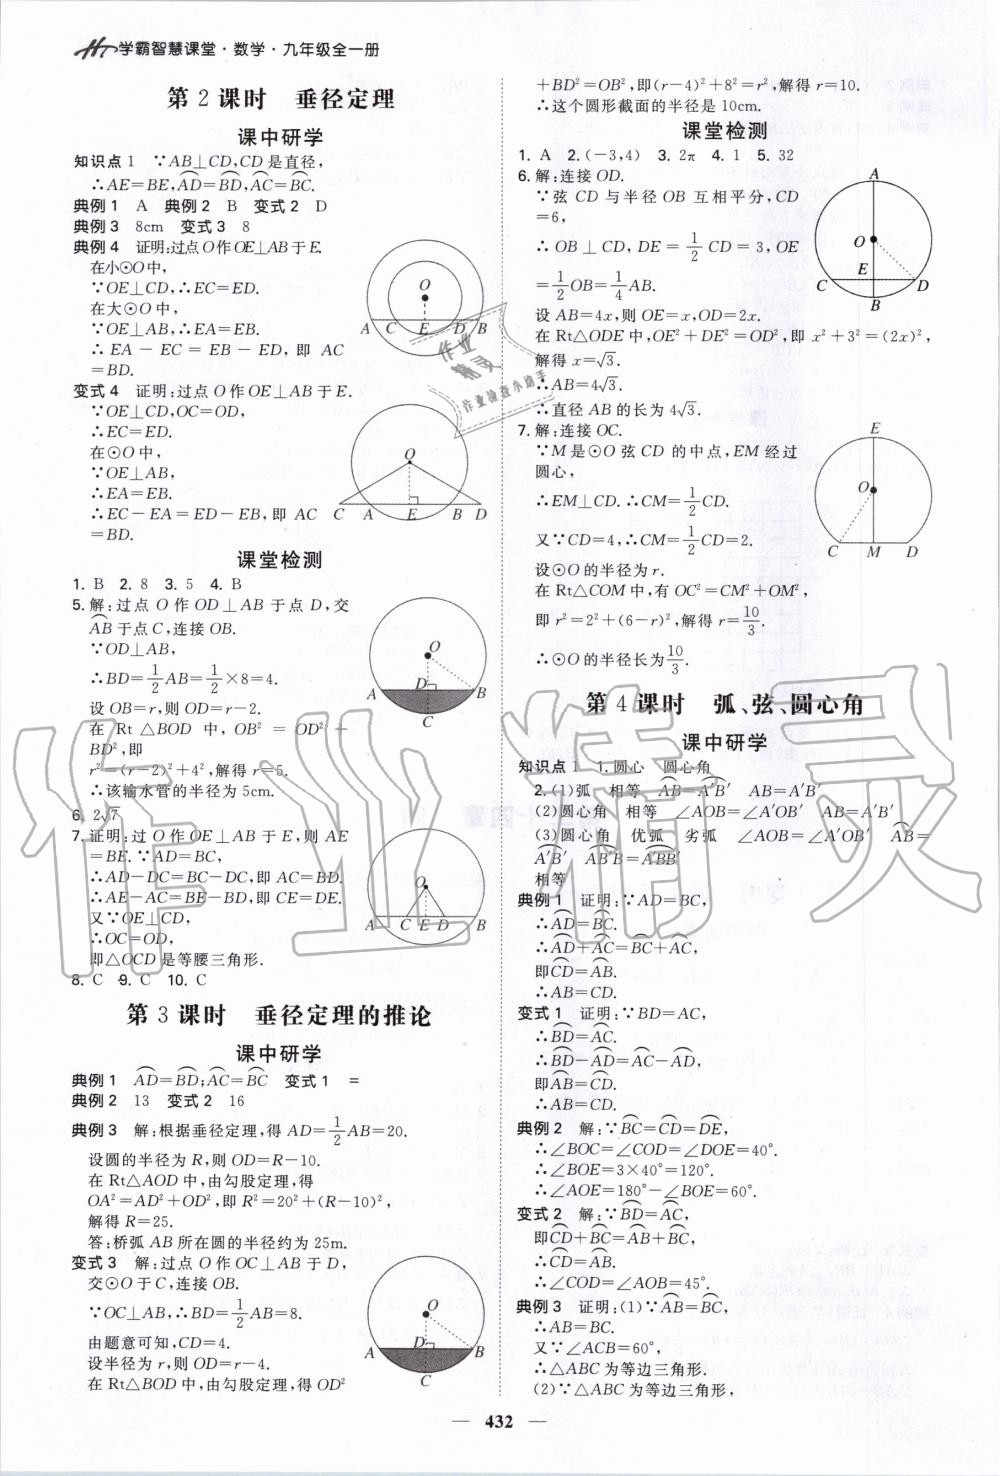 学霸智慧课堂·数学·九年级全一册
第2课时 垂径定理
课中研学
知识点1 ∵AB⊥CD,CD是直径,
∴AE=BE,AD=BD,AC=BC.
典例1 A 典例2 B 变式2 D
典例3 8cm 变式3 8
典例4 证明:过点O作OE⊥AB于E.
在小⊙O中,
∵OE⊥CD,∴EC=ED.
在大⊙O中,
∵OE⊥AB,∴EA=EB.
∴EA-EC=EB-ED,即 AC
=BD.
O
A C E D B
变式4 证明:过点O作OE⊥AB于E.
∵OE⊥CD,OC=OD,
∴EC=ED.
在⊙O中,
∵OE⊥AB,
∴EA=EB.
∴EC-EA=ED-EB,即 AC
=BD.
O
C A E B D
课堂检测
1. B 2. 8 3. 5 4. B
5. 解:过点O作OD⊥AB于点D,交
AB于点C,连接OB.
∵OD⊥AB,
∴BD=1/2AB=1/2×8=4.
设OB=r,则OD=r-2.
在 Rt△BOD 中,OB²=OD²+
BD²,即
r²=(r-2)²+4²,解得r=5.
∴该输水管的半径为5cm.
O
A D B
C
6. 2√7
7. 证明:过O作OE⊥AB于E,则AE
=BE.∵AD=BC,
∴AD-DC=BC-DC,即AC=BD.
∴AE-AC=BE-BD,即CE=DE.
又∵OE⊥CD,
∴OC=OD,
即△OCD是等腰三角形.
O
A C E D B
8. C 9. C 10. C
第3课时 垂径定理的推论
课中研学
典例1 AD=BD;AC=BC 变式1 =
典例2 13 变式2 16
典例3 解:根据垂径定理,得AD=1/2AB=20.
设圆的半径为R,则OD=R-10.
在Rt△AOD中,由勾股定理,得
OA²=AD²+OD²,即R²=20²+(R-10)²,
解得R=25.
答:桥弧AB所在圆的半径约为25m.
变式3 解:过点O作OC⊥AB于D,
交⊙O于C,连接OB.
∵OC⊥AB,∴BD=1/2AB=8.
由题意可知,CD=4.
设半径为r,则OD=r-4.
在Rt△BOD中,由勾股定理,得OD²
O
A D B
C
+BD²=OB²,即(r-4)²+8²=r²,解得r=10.
∴这个圆形截面的半径是10cm.
课堂检测
1. A 2. (-3,4) 3. 2π 4. 1 5. 32
6. 解:连接OD.
∵弦CD与半径OB互相平分,CD
=6,
∴OB⊥CD,DE=1/2CD=3,OE
=1/2OB=1/4AB.
设AB=4x,则OE=x,OD=2x.
在Rt△ODE中,OE²+DE²=OD²,即x²+3²=(2x)²,
解得x=√3.
∴AB=4√3.
∴直径AB的长为4√3.
A
O
C E D
B
7. 解:连接OC.
∵M是⊙O弦CD的中点,EM经过
圆心,
∴EM⊥CD.∴CM=1/2CD.
又∵CD=4,∴CM=1/2CD=2.
设⊙O的半径为r.
在Rt△COM中,有OC²=CM²+OM²,
即r²=2²+(6-r)²,解得r=10/3.
∴⊙O的半径长为10/3.
E
O
C M D
第4课时 弧、弦、圆心角
课中研学
知识点1 1.圆心 圆心角
2.(1)弧 相等 AB=A′B′ AB=A′B′
(2)圆心角 相等 ∠AOB=∠A′OB′ AB=A′B′
(3)圆心角 优弧 劣弧 ∠AOB=∠A′OB′ AB=
A′B′ AB′B=A′BB′
相等
典例1 证明:∵AD=BC,
∴AD=BC.
∴AD+AC=BC+AC,
即CD=AB.
∴AB=CD.
变式1 证明:∵BD=AC,
∴BD=AC.
∴BD-AD=AC-AD,
即AB=CD.
∴AB=CD.
典例2 解:∵BC=CD=DE,
∴∠BOC=∠COD=∠DOE=40°.
∴∠BOE=3×40°=120°.
∴∠AOE=180°-∠BOE=60°.
变式2 解:∵BD=AC,
即CD+BC=AB+BC,
∴CD=AB.
∴∠COD=∠AOB=45°.
典例3 证明:(1)∵AB=BC,
∴AB=BC.
又∵∠ACB=60°,
∴△ABC为等边三角形.
(2)∵△ABC为等边三角形,
432
作业精灵
作业精灵
作业检查小助手